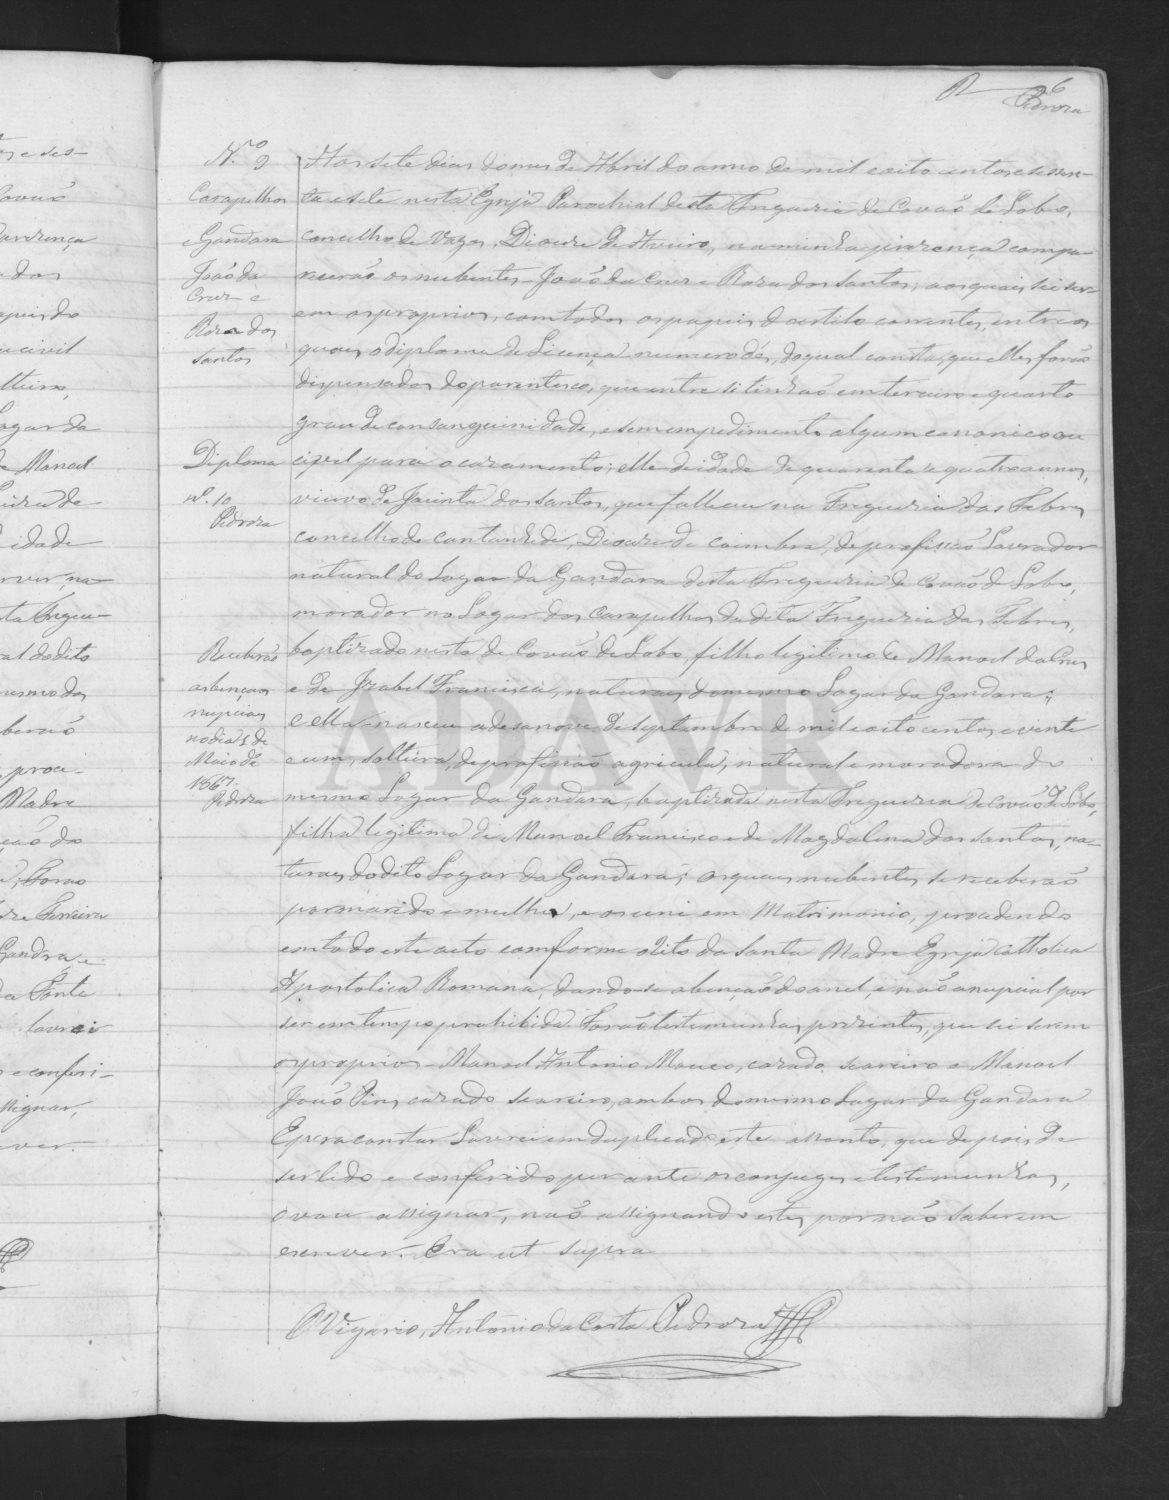 R 6
Pedroza
N.º 9
Carapelhos
e Gandara
João da
Cruz e
Roza dos
Santos
Diploma
nº. 10
Pedroza
Receberão
as bençaos
nupciaes
no dia de
Maio de
1867.
Pedroza
Aos sete dias do mes de Abril do anno de mil e oito centos e sessen-
ta e sete nesta Egreja Parochial desta Freguezia de Covaõ de Lobo,
concelho de Vagos, Diocese de Aveiro, na minha prezença compa-
recerão os nubentes João da Cruz e Roza dos Santos, aos quaes sei ser-
em os proprios, com todos os papeis do estilo correntes, entre os
quaes o diploma de Licença numero dés, do qual consta, que elles forão
dispensados do parentesco, que entre si tinhaõ em terceiro e quarto
grau de consanguinidade, e sem empedimento algum canonico ou
civil para o cazamento; elle de idade de quarenta e quatro annos,
viuvo de Jacinta dos Santos, que falleceu na Freguezia das Febres
concelho de Cantanhede, Diocese de Coimbra, de profissaõ Lavrador
natural do Logar da Gandara desta Freguezia de Covaõ de Lobo,
morador no Logar dos Carapelhos da dita Freguezia das Febres,
baptizado nesta de Covaõ de Lobo, filho legitimo de Manoel da Cruz
e de Izabel Francisca, naturaes do mesmo Logar da Gandara;
e ella nasceu a desanove de Septembro de mil e oito centos e vinte
e um, solteira, de profissaõ agricula, natural e moradora do
mesmo Logar da Gandara, baptizada nesta Freguezia de Covaõ de Lobo,
filha legitima de Manoel Francisco e de Magdalena dos Santos, na-
turaes do dito Logar da Gandara; os quaes nubentes se receberaõ
por marido e mulher, e os uni em Matrimonio, procedendo
em todo este acto comforme o Rito da Santa Madre Egreja Catholica
Apostolica Romana, dando-se a bençaõ do anel, e naõ a nupcial por
ser em tempo prohibido. Foraõ testemunhas prezentes, que sei serem
os proprios - Manoel Antonio Mouco, cazado, seareiro e Manoel
João Pins cazado seareiro, ambos do mesmo Logar da Gandara
E para constar Lavrei em duplicado este assento, que depois de
ser lido e conferido perante os conjuges e testemunhas,
o vou assignar, naõ assignando estes por naõ saberem
escrever. Era ut supra
O Vigario, Antonio da Costa Pedroza